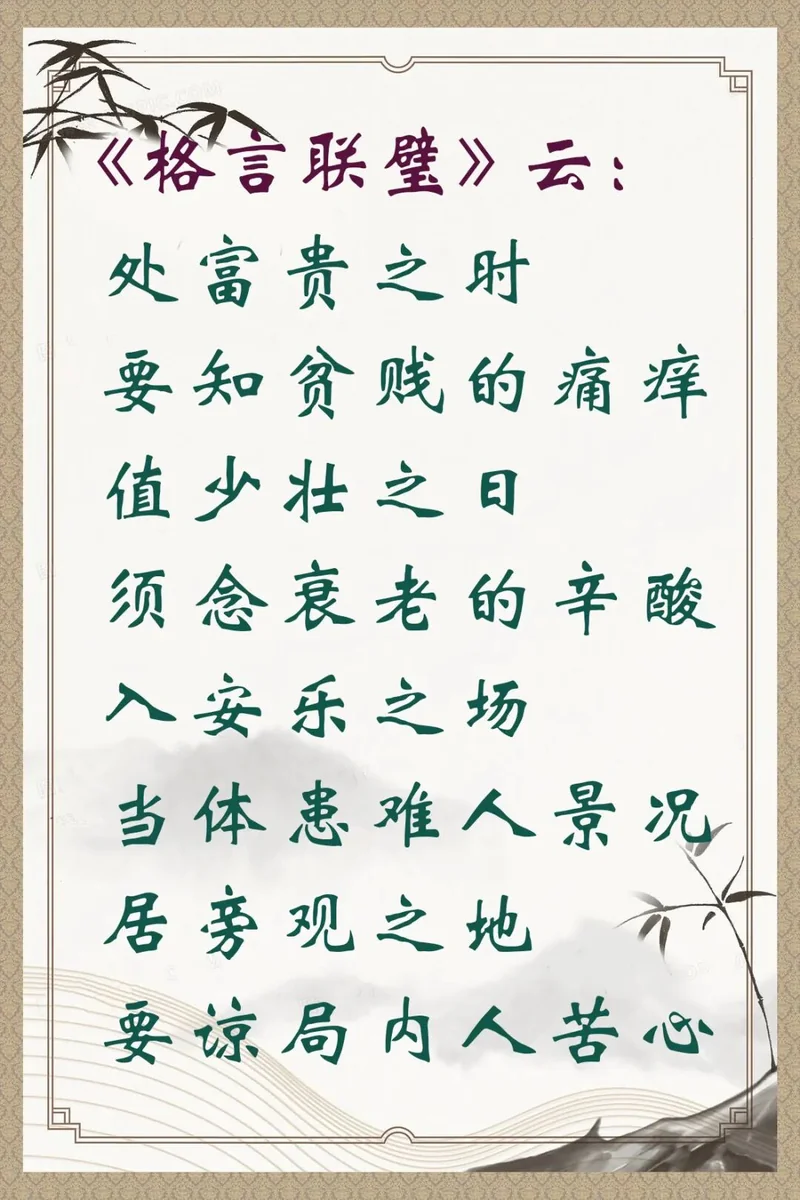 《格言联璧》云：
处富贵之时
要知贫贱的痛痒
值少壮之日
须念衰老的辛酸
入安乐之场
当体患难人景况
居旁观之地
要谅局内人苦心